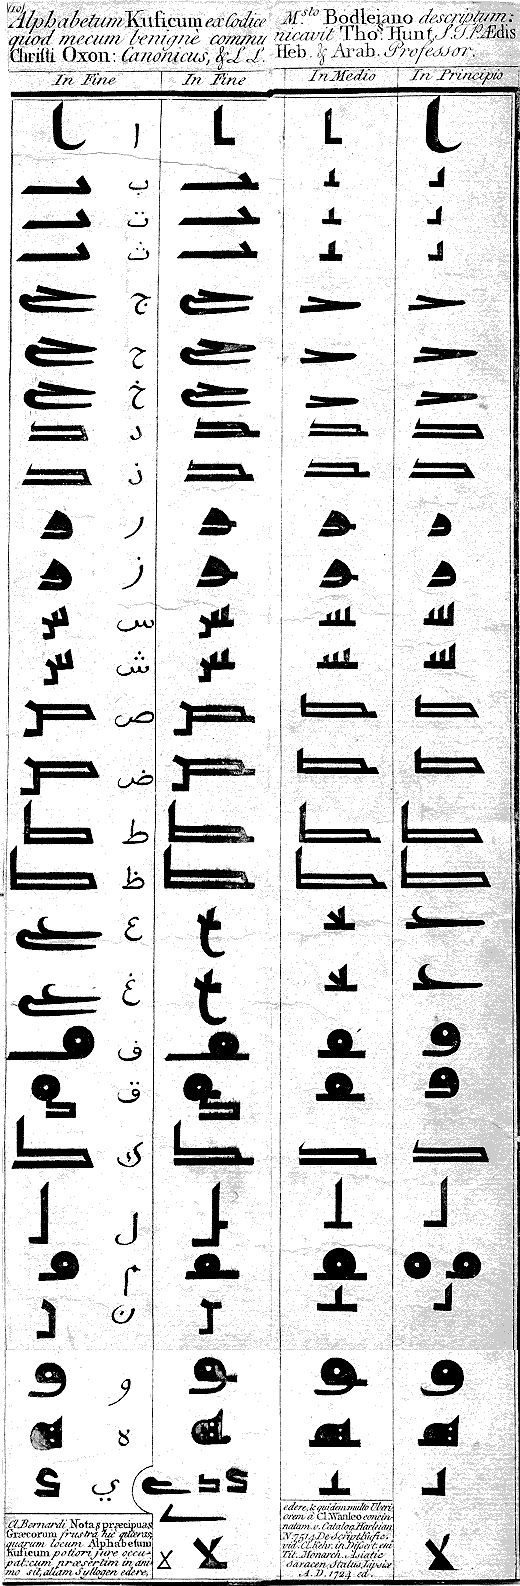 Alphabetum Kuficum ex Codice M.sto Bodlejano descriptum:
quod mecum benignè communicavit Tho.s Hunt, S.T.P. Ædis
Christi Oxon: Canonicus, & L L. Heb. & Arab. Professor.
In Fine In Fine In Medio In Principio
ا
ب
ت
ث
ج
ح
خ
د
ذ
ر
ز
س
ش
ص
ض
ط
ظ
ع
غ
ف
ق
ك
ل
م
ن
و
ه
ي
Cl. Bernardi, Notas præcipuas
Græcorum frustra hic quæras,
quarum locum Alphabetum
Kuficum potiori jure occu-
pat: cum præsertim in ani-
mo sit, aliam Syllogen edere,
edere, & quidem multo Uberi-
orem a Cl. Wanleo concin-
natam. v. Catalog. Harleian.
N. 7514. De Script. Kufic.
vid. Cl. Kehr. in Dissert. cui
Tit. Monarch. Asiatic
Saracen. Status, Lipsiæ
A. D. 1724 ed.